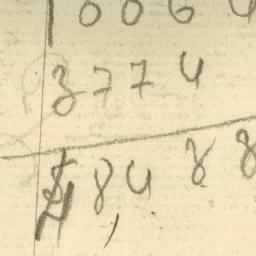 0064
3774
8488